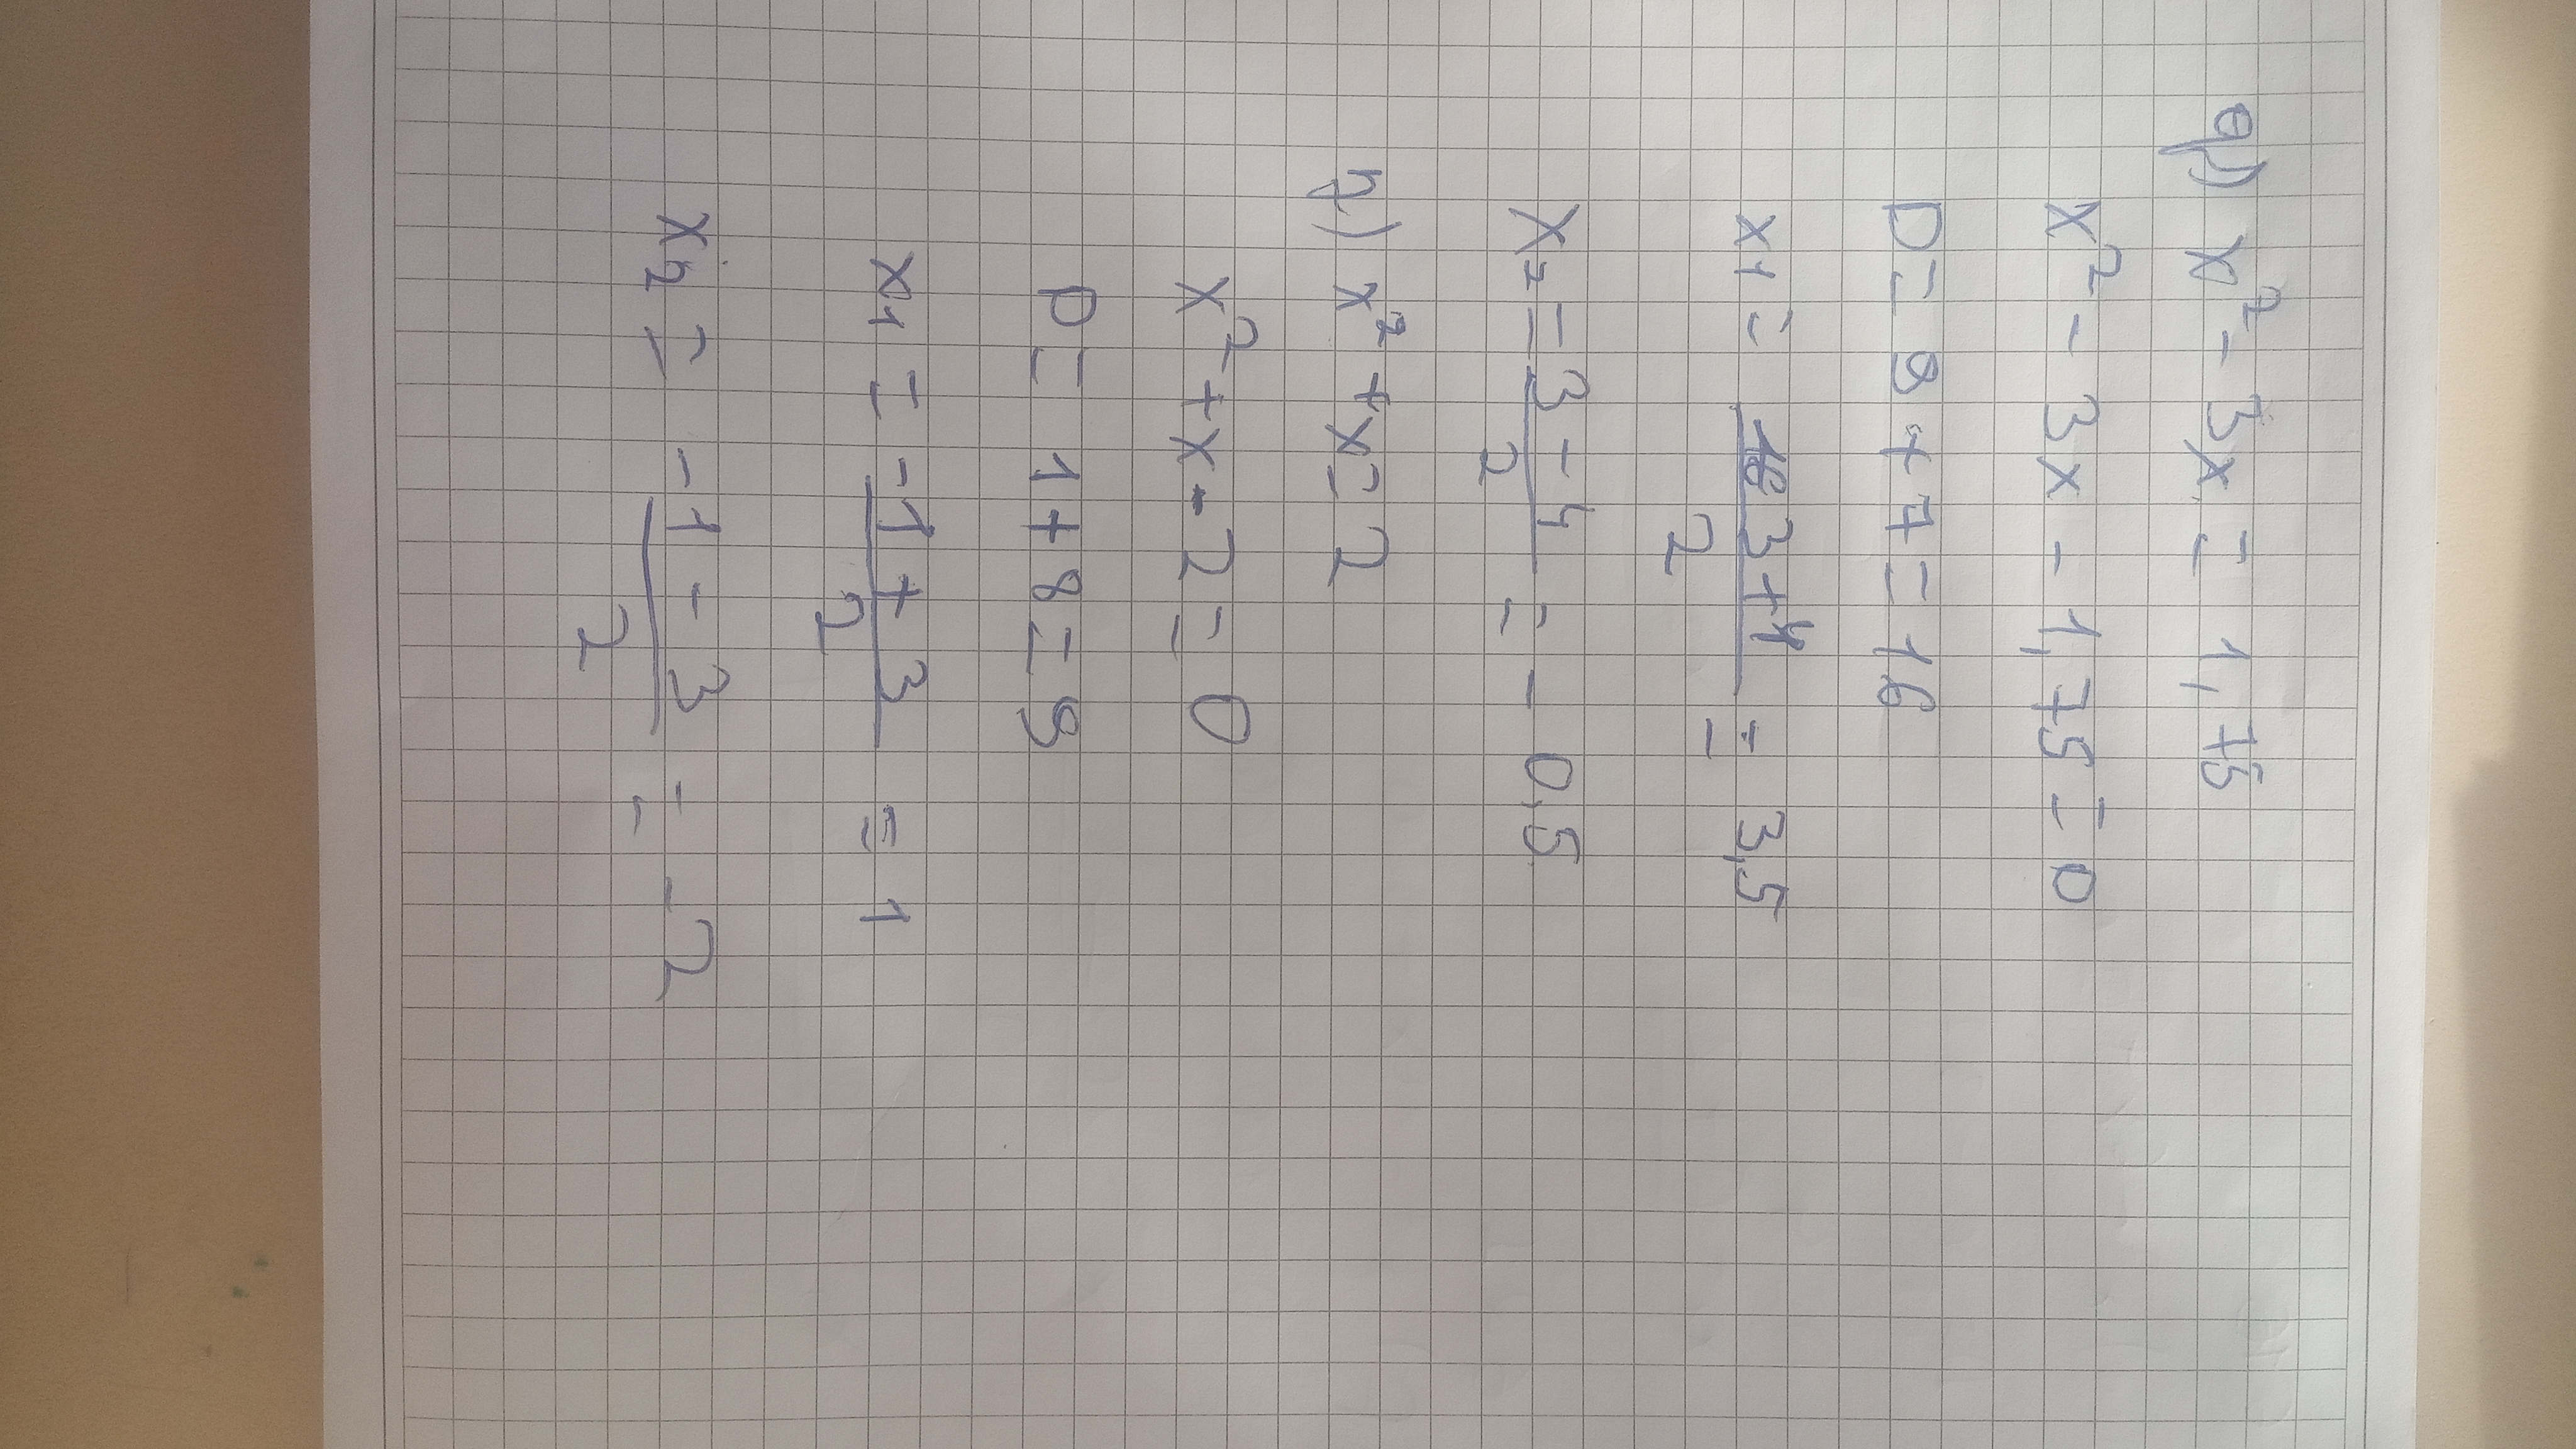 գ) x² - 3x = 1,75
x² - 3x - 1,75 = 0
D = 9 + 7 = 16
x1 = 3+4/2 = 3,5
x2 = 3-4/2 = - 0,5
դ) x² + x = 2
x² + x - 2 = 0
D = 1 + 8 = 9
x1 = -1 + 3/2 = 1
x2 = -1 - 3/2 = -2